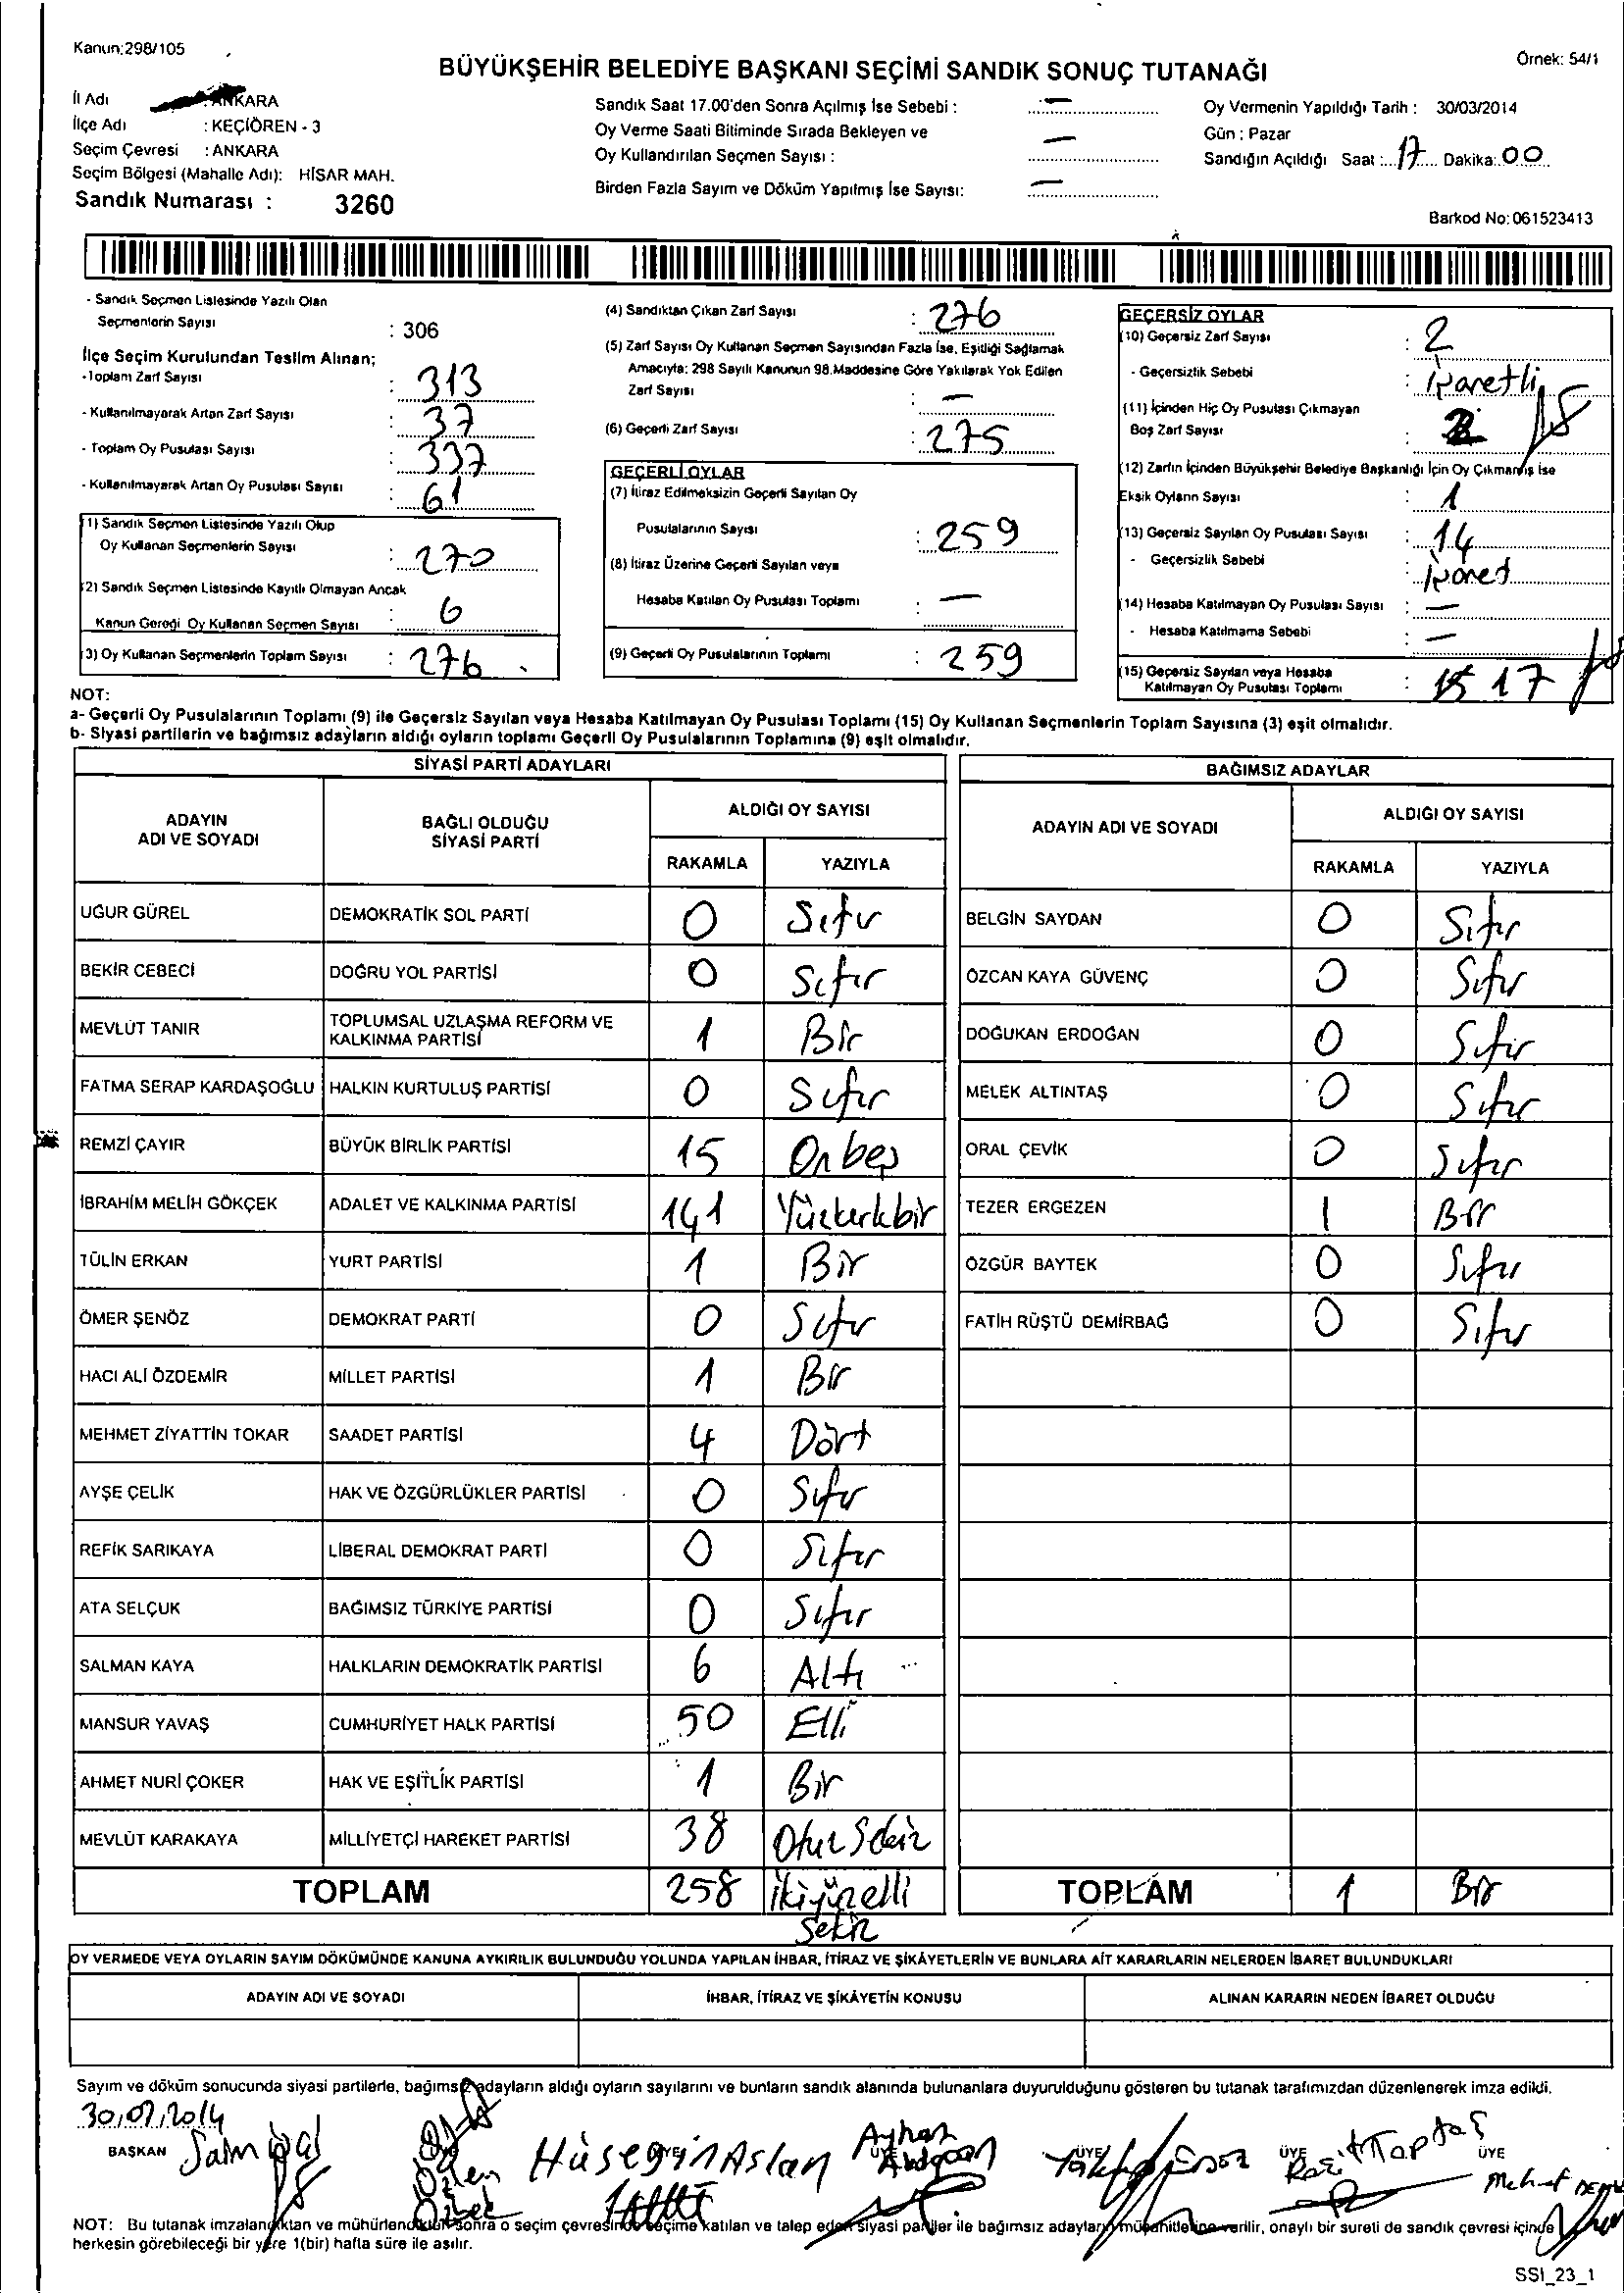 Kanun:298/105
Örnek: 54/1
BÜYÜKŞEHİR BELEDİYE BAŞKANI SEÇİMİ SANDIK SONUÇ TUTANAĞI
İl Adı : ANKARA
İlçe Adı : KEÇİÖREN - 3
Seçim Çevresi : ANKARA
Seçim Bölgesi (Mahalle Adı): HİSAR MAH.
Sandık Numarası : 3260
Sandık Saat 17.00'den Sonra Açılmış İse Sebebi : —
Oy Verme Saati Bitiminde Sırada Bekleyen ve
Oy Kullandırılan Seçmen Sayısı : —
Birden Fazla Sayım ve Döküm Yapılmış İse Sayısı: —
Oy Vermenin Yapıldığı Tarih : 30/03/2014
Gün : Pazar
Sandığın Açıldığı Saat : 17 Dakika: 00
Barkod No: 061523413
- Sandık Seçmen Listesinde Yazılı Olan
Seçmenlerin Sayısı : 306
İlçe Seçim Kurulundan Teslim Alınan;
-Toplam Zarf Sayısı : 313
- Kullanılmayarak Artan Zarf Sayısı : 37
- Toplam Oy Pusulası Sayısı : 337
- Kullanılmayarak Artan Oy Pusulası Sayısı : 61
(1) Sandık Seçmen Listesinde Yazılı Olup
Oy Kullanan Seçmenlerin Sayısı : 270
(2) Sandık Seçmen Listesinde Kayıtlı Olmayan Ancak
Kanun Gereği Oy Kullanan Seçmen Sayısı : 6
(3) Oy Kullanan Seçmenlerin Toplam Sayısı : 276
(4) Sandıktan Çıkan Zarf Sayısı : 276
(5) Zarf Sayısı Oy Kullanan Seçmen Sayısından Fazla İse, Eşitliği Sağlamak
Amacıyla: 298 Sayılı Kanunun 98.Maddesine Göre Yakılarak Yok Edilen
Zarf Sayısı : —
(6) Geçerli Zarf Sayısı : 275
GEÇERLİ OYLAR
(7) İtiraz Edilmeksizin Geçerli Sayılan Oy
Pusulalarının Sayısı : 259
(8) İtiraz Üzerine Geçerli Sayılan veya
Hesaba Katılan Oy Pusulası Toplamı : —
(9) Geçerli Oy Pusulalarının Toplamı : 259
GEÇERSİZ OYLAR
(10) Geçersiz Zarf Sayısı : 2
- Geçersizlik Sebebi : İşaretli
(11) İçinden Hiç Oy Pusulası Çıkmayan
Boş Zarf Sayısı :
(12) Zarfın İçinden Büyükşehir Belediye Başkanlığı İçin Oy Çıkmamış İse
Eksik Oyların Sayısı : 1
(13) Geçersiz Sayılan Oy Pusulası Sayısı : 14
- Geçersizlik Sebebi : İşaret
(14) Hesaba Katılmayan Oy Pusulası Sayısı : —
- Hesaba Katılmama Sebebi : —
(15) Geçersiz Sayılan veya Hesaba
Katılmayan Oy Pusulası Toplamı : 17
NOT:
a- Geçerli Oy Pusulalarının Toplamı (9) ile Geçersiz Sayılan veya Hesaba Katılmayan Oy Pusulası Toplamı (15) Oy Kullanan Seçmenlerin Toplam Sayısına (3) eşit olmalıdır.
b- Siyasi partilerin ve bağımsız adayların aldığı oyların toplamı Geçerli Oy Pusulalarının Toplamına (9) eşit olmalıdır.
SİYASİ PARTİ ADAYLARI
ADAYIN ADI VE SOYADI BAĞLI OLDUĞU SİYASİ PARTİ ALDIĞI OY SAYISI
RAKAMLA YAZIYLA
UĞUR GÜREL DEMOKRATİK SOL PARTİ 0 Sıfır
BEKİR CEBECİ DOĞRU YOL PARTİSİ 0 Sıfır
MEVLÜT TANIR TOPLUMSAL UZLAŞMA REFORM VE KALKINMA PARTİSİ 1 Bir
FATMA SERAP KARDAŞOĞLU HALKIN KURTULUŞ PARTİSİ 0 Sıfır
REMZİ ÇAYIR BÜYÜK BİRLİK PARTİSİ 15 Onbeş
İBRAHİM MELİH GÖKÇEK ADALET VE KALKINMA PARTİSİ 141 Yüzkırkbir
TÜLİN ERKAN YURT PARTİSİ 1 Bir
ÖMER ŞENÖZ DEMOKRAT PARTİ 0 Sıfır
HACI ALİ ÖZDEMİR MİLLET PARTİSİ 1 Bir
MEHMET ZİYATTİN TOKAR SAADET PARTİSİ 4 Dört
AYŞE ÇELİK HAK VE ÖZGÜRLÜKLER PARTİSİ 0 Sıfır
REFİK SARIKAYA LİBERAL DEMOKRAT PARTİ 0 Sıfır
ATA SELÇUK BAĞIMSIZ TÜRKİYE PARTİSİ 0 Sıfır
SALMAN KAYA HALKLARIN DEMOKRATİK PARTİSİ 6 Altı
MANSUR YAVAŞ CUMHURİYET HALK PARTİSİ 50 Elli
AHMET NURİ ÇOKER HAK VE EŞİTLİK PARTİSİ 1 Bir
MEVLÜT KARAKAYA MİLLİYETÇİ HAREKET PARTİSİ 38 Otuz Sekiz
TOPLAM 258 ikiyüzelli
Sekiz
BAĞIMSIZ ADAYLAR
ADAYIN ADI VE SOYADI ALDIĞI OY SAYISI
RAKAMLA YAZIYLA
BELGİN SAYDAN 0 Sıfır
ÖZCAN KAYA GÜVENÇ 0 Sıfır
DOĞUKAN ERDOĞAN 0 Sıfır
MELEK ALTINTAŞ 0 Sıfır
ORAL ÇEVİK 0 Sıfır
TEZER ERGEZEN 1 Bir
ÖZGÜR BAYTEK 0 Sıfır
FATİH RÜŞTÜ DEMİRBAĞ 0 Sıfır
TOPLAM 1 Bir
OY VERMEDE VEYA OYLARIN SAYIM DÖKÜMÜNDE KANUNA AYKIRILIK BULUNDUĞU YOLUNDA YAPILAN İHBAR, İTİRAZ VE ŞİKÂYETLERİN VE BUNLARA AİT KARARLARIN NELERDEN İBARET BULUNDUKLARI
ADAYIN ADI VE SOYADI İHBAR, İTİRAZ VE ŞİKÂYETİN KONUSU ALINAN KARARIN NEDEN İBARET OLDUĞU
Sayım ve döküm sonucunda siyasi partilerle, bağımsız adayların aldığı oyların sayılarını ve bunların sandık alanında bulunanlara duyurulduğunu gösteren bu tutanak tarafımızdan düzenlenerek imza edildi.
BAŞKAN Özlen Özbek Hüseyin Aslan ÜYE Ayhan ÜYE ÜYE ÜYE Raşit Taptaş ÜYE
NOT: Bu tutanak imzalandıktan ve mühürlendikten sonra o seçim çevresinde seçime katılan ve talep eden siyasi partiler ile bağımsız adayların müşahitlerine verilir, onaylı bir sureti de sandık çevresi içinde
herkesin görebileceği bir yere 1(bir) hafta süre ile asılır.
SSI_23_1